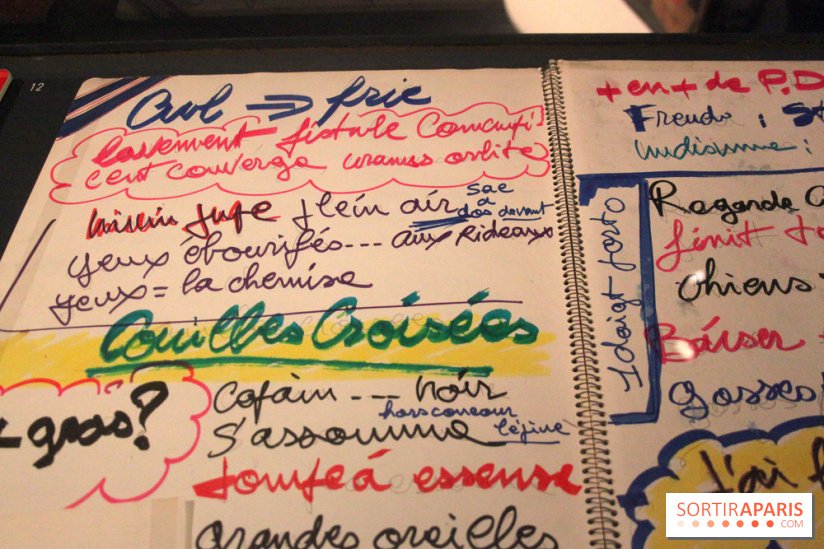 12
Avl => fric
lavement fistule
cent converge uranus orbite
juge plein air sac
à
dos devant
yeux ébourifés --- aux Rideaux
yeux = la chemise
Couilles Croisées
gras?
Copain --- noir
hors concour
S'assomme
Pompe à essense
grandes oreilles
+ en + de P.D
Freud :
indienne :
1 doigt
Regarde
finit
chiens
Baiser
gosses
J'ai
SORTIRAPARIS
.COM